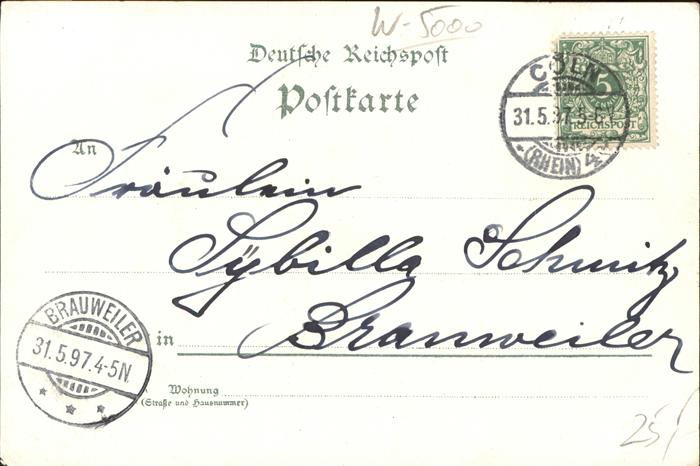 W-5000
Deutsche Reichspost
Postkarte
CÖLN
31.5.97.
(RHEIN)
5
REICHSPOST
An
Fräulein
Sÿbilla Schmitz
in Brauweiler
BRAUWEILER
31.5.97.4-5N.
Wohnung
(Straße und Hausnummer)
25/